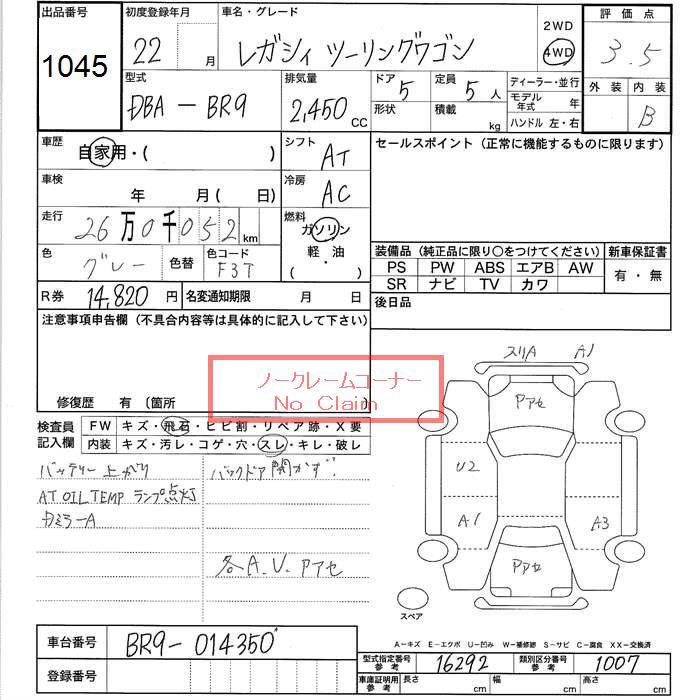 出品番号
1045
初度登録年月
22 月
車名・グレード
レガシィ ツーリングワゴン
2WD
4WD
評価点
3.5
外装 内装
B
型式
DBA-BR9
排気量
2,450 CC
ドア 5
形状
定員 5 人
積載 kg
ディーラー・並行
モデル年式 年
ハンドル 左・右
車歴
自家用・( )
シフト
AT
セールスポイント（正常に機能するものに限ります）
車検
年 月( 日)
冷房
AC
走行
26万0千052km
燃料
ガソリン
軽・油
( ・ )
色
グレー
色替
色コード
F3T
装備品（純正品に限り○をつけてください）
PS PW ABS エアB AW
SR ナビ TV カワ
新車保証書
有・無
R券 14,820 円
名変通知期限 月 日
後日品
注意事項申告欄（不具合内容等は具体的に記入して下さい）
ノークレームコーナー
No Claim
修復歴 有 〔箇所
検査員記入欄
FW キズ・飛石・ヒビ割・リペア跡・X要
内装 キズ・汚レ・コゲ・穴・スレ・キレ・破レ
バッテリー上がり
バックドア開かず
AT OIL TEMP ランプ点灯
ミラーA
各A.U.Pアセ
スリA A1
Pアセ
U2
A1
A3
Pアセ
スペア
A－キズ E－エクボ U－凹み W－補修跡 S－サビ C－腐食 XX－交換済
車台番号 BR9-014350*
登録番号
型式指定番号参考 16292
類別区分番号参考 1007
車庫証明用参考 長さ cm 幅 cm 高さ cm